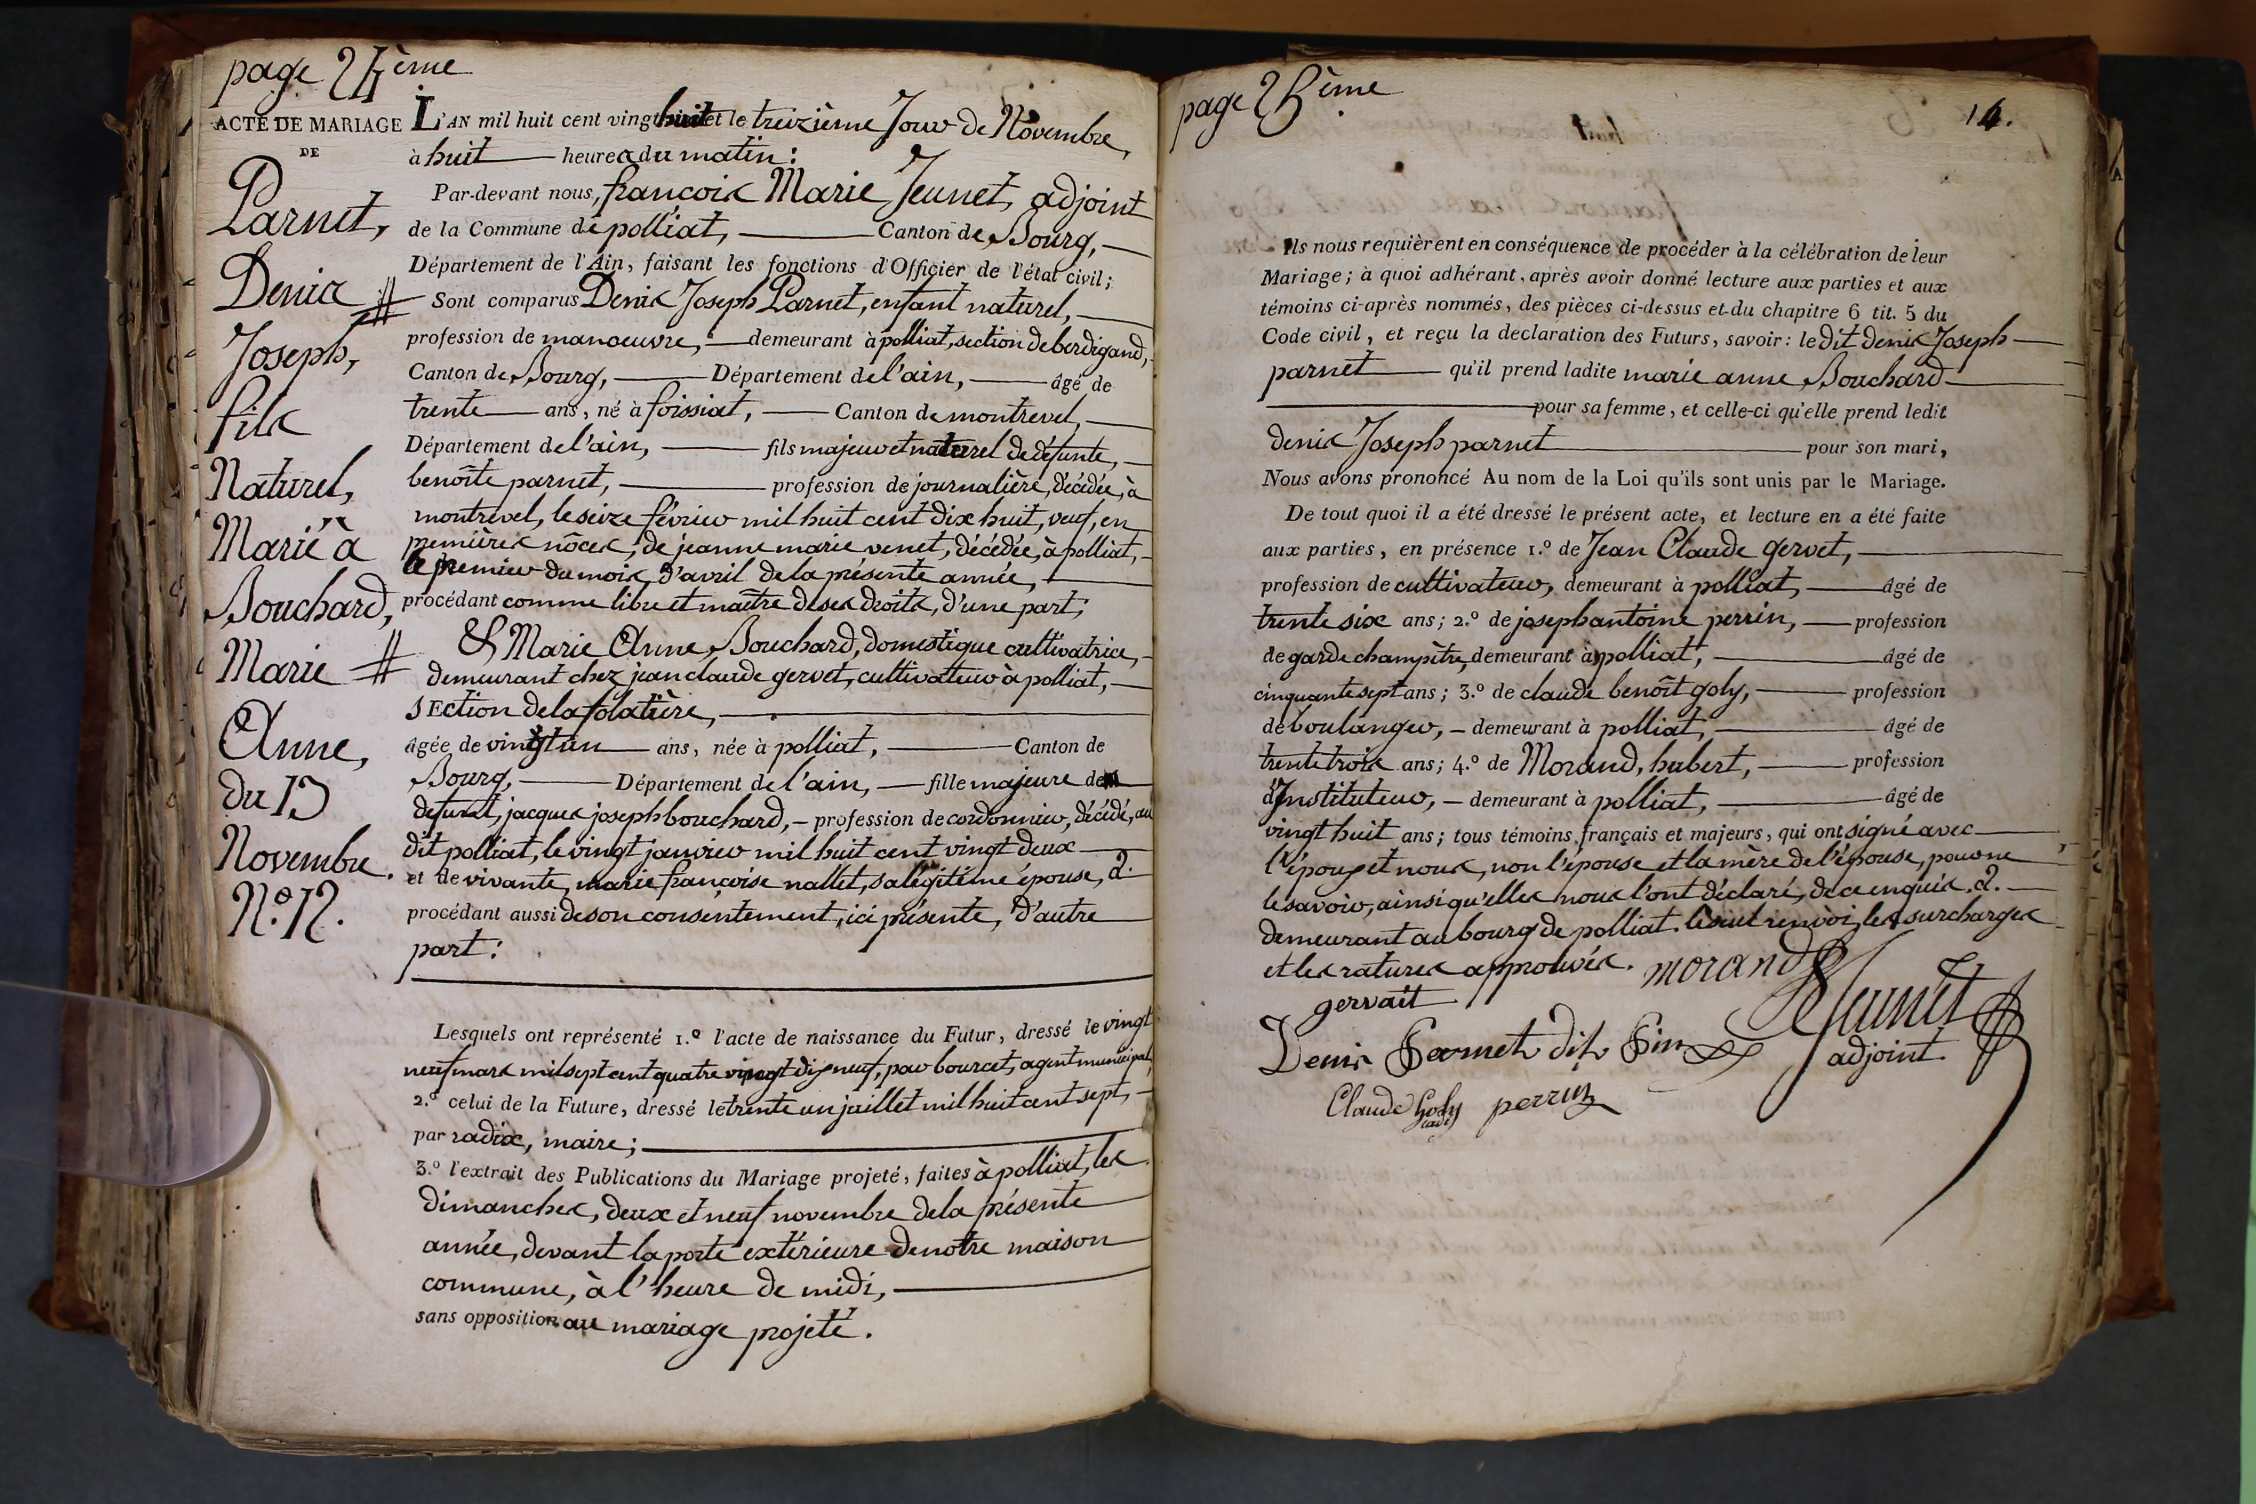 page 24ème
ACTE DE MARIAGE
DE
Parnet,
Denis
Joseph,
fils
Naturel,
Marié à
Bouchard,
Marie
Anne,
du 13
Novembre.
N.º 12.
L'AN mil huit cent vingt huit et le treizième Jour de Novembre,
à huit heures du matin :
Par-devant nous, françois Marie Jeunet, adjoint
de la Commune de polliat, Canton de Bourg,
Département de l'Ain, faisant les fonctions d'Officier de l'état civil;
Sont comparus Denis Joseph Parnet, enfant naturel,
profession de manoeuvre, demeurant à polliat, section de berdigand,
Canton de Bourg, Département de l'ain, âgé de
trente ans, né à foissiat, Canton de montrevel,
Département de l'ain, fils majeur et naturel de défunte,
benoîte parnet, profession de journalière, décédée, à
montrevel, le seize février mil huit cent dix huit, veuf, en
premières nôces, de jeanne marie venet, décédée, à polliat,
le premier du mois d'avril de la présente année,
procédant comme libre et maître de ses droits, d'une part;
& Marie Anne Bouchard, domestique cultivatrice,
demeurant chez jean claude gervet, cultivatteur à polliat,
sEction de la folatière,
âgée de vingt un ans, née à polliat, Canton de
Bourg, Département de l'ain, fille majeure de
defunt, jacques joseph bouchard, profession de cordonnier, décédé, au
dit polliat, le vingt janvier mil huit cent vingt deux
et de vivante, marie françoise nallet, sa légitime épouse, d.
procédant aussi de son consentement, ici présente, d'autre
part :
Lesquels ont représenté 1.º l'acte de naissance du Futur, dressé le vingt
neuf mars mil sept cent quatre vingt dix neuf, par bourcet, agent municipal,
2.º celui de la Future, dressé le trente un juillet mil huit cent sept,
par radix, maire ;
3.º l'extrait des Publications du Mariage projeté, faites à polliat, les
dimanches, deux et neuf novembre de la présente
année, devant la porte extérieure de notre maison
commune, à l'heure de midi,
sans opposition au mariage projeté.
page 25ème
14.
Ils nous requièrent en conséquence de procéder à la célébration de leur
Mariage ; à quoi adhérant, après avoir donné lecture aux parties et aux
témoins ci-après nommés, des pièces ci-dessus et du chapitre 6 tit. 5 du
Code civil, et reçu la declaration des Futurs, savoir : le dit denis Joseph
parnet qu'il prend ladite marie anne Bouchard
pour sa femme, et celle-ci qu'elle prend ledit
denis Joseph parnet pour son mari,
Nous avons prononcé Au nom de la Loi qu'ils sont unis par le Mariage.
De tout quoi il a été dressé le présent acte, et lecture en a été faite
aux parties, en présence 1.º de Jean Claude gervet,
profession de cultivateur, demeurant à polliat, âgé de
trente six ans ; 2.º de joseph antoine perrin, profession
de garde champître, demeurant à polliat, âgé de
cinquante sept ans ; 3.º de claude benoît goly, profession
de boulanger, demeurant à polliat, âgé de
trente trois ans ; 4.º de Morand, hubert, profession
d'Instituteur, demeurant à polliat, âgé de
vingt huit ans ; tous témoins français et majeurs, qui ont signé avec
l'époux et nous, non l'épouse et la mère de l'épouse, pour ne
le savoir, ainsi qu'elles nous l'ont déclaré, de ce enquis. d.
demeurant au bourg de polliat. le seul renvoi, les surcharges
et les ratures approuvés. morand
gervait
Jeunet
Denis Parnet dit Pin
adjoint
Claude Goly perrin